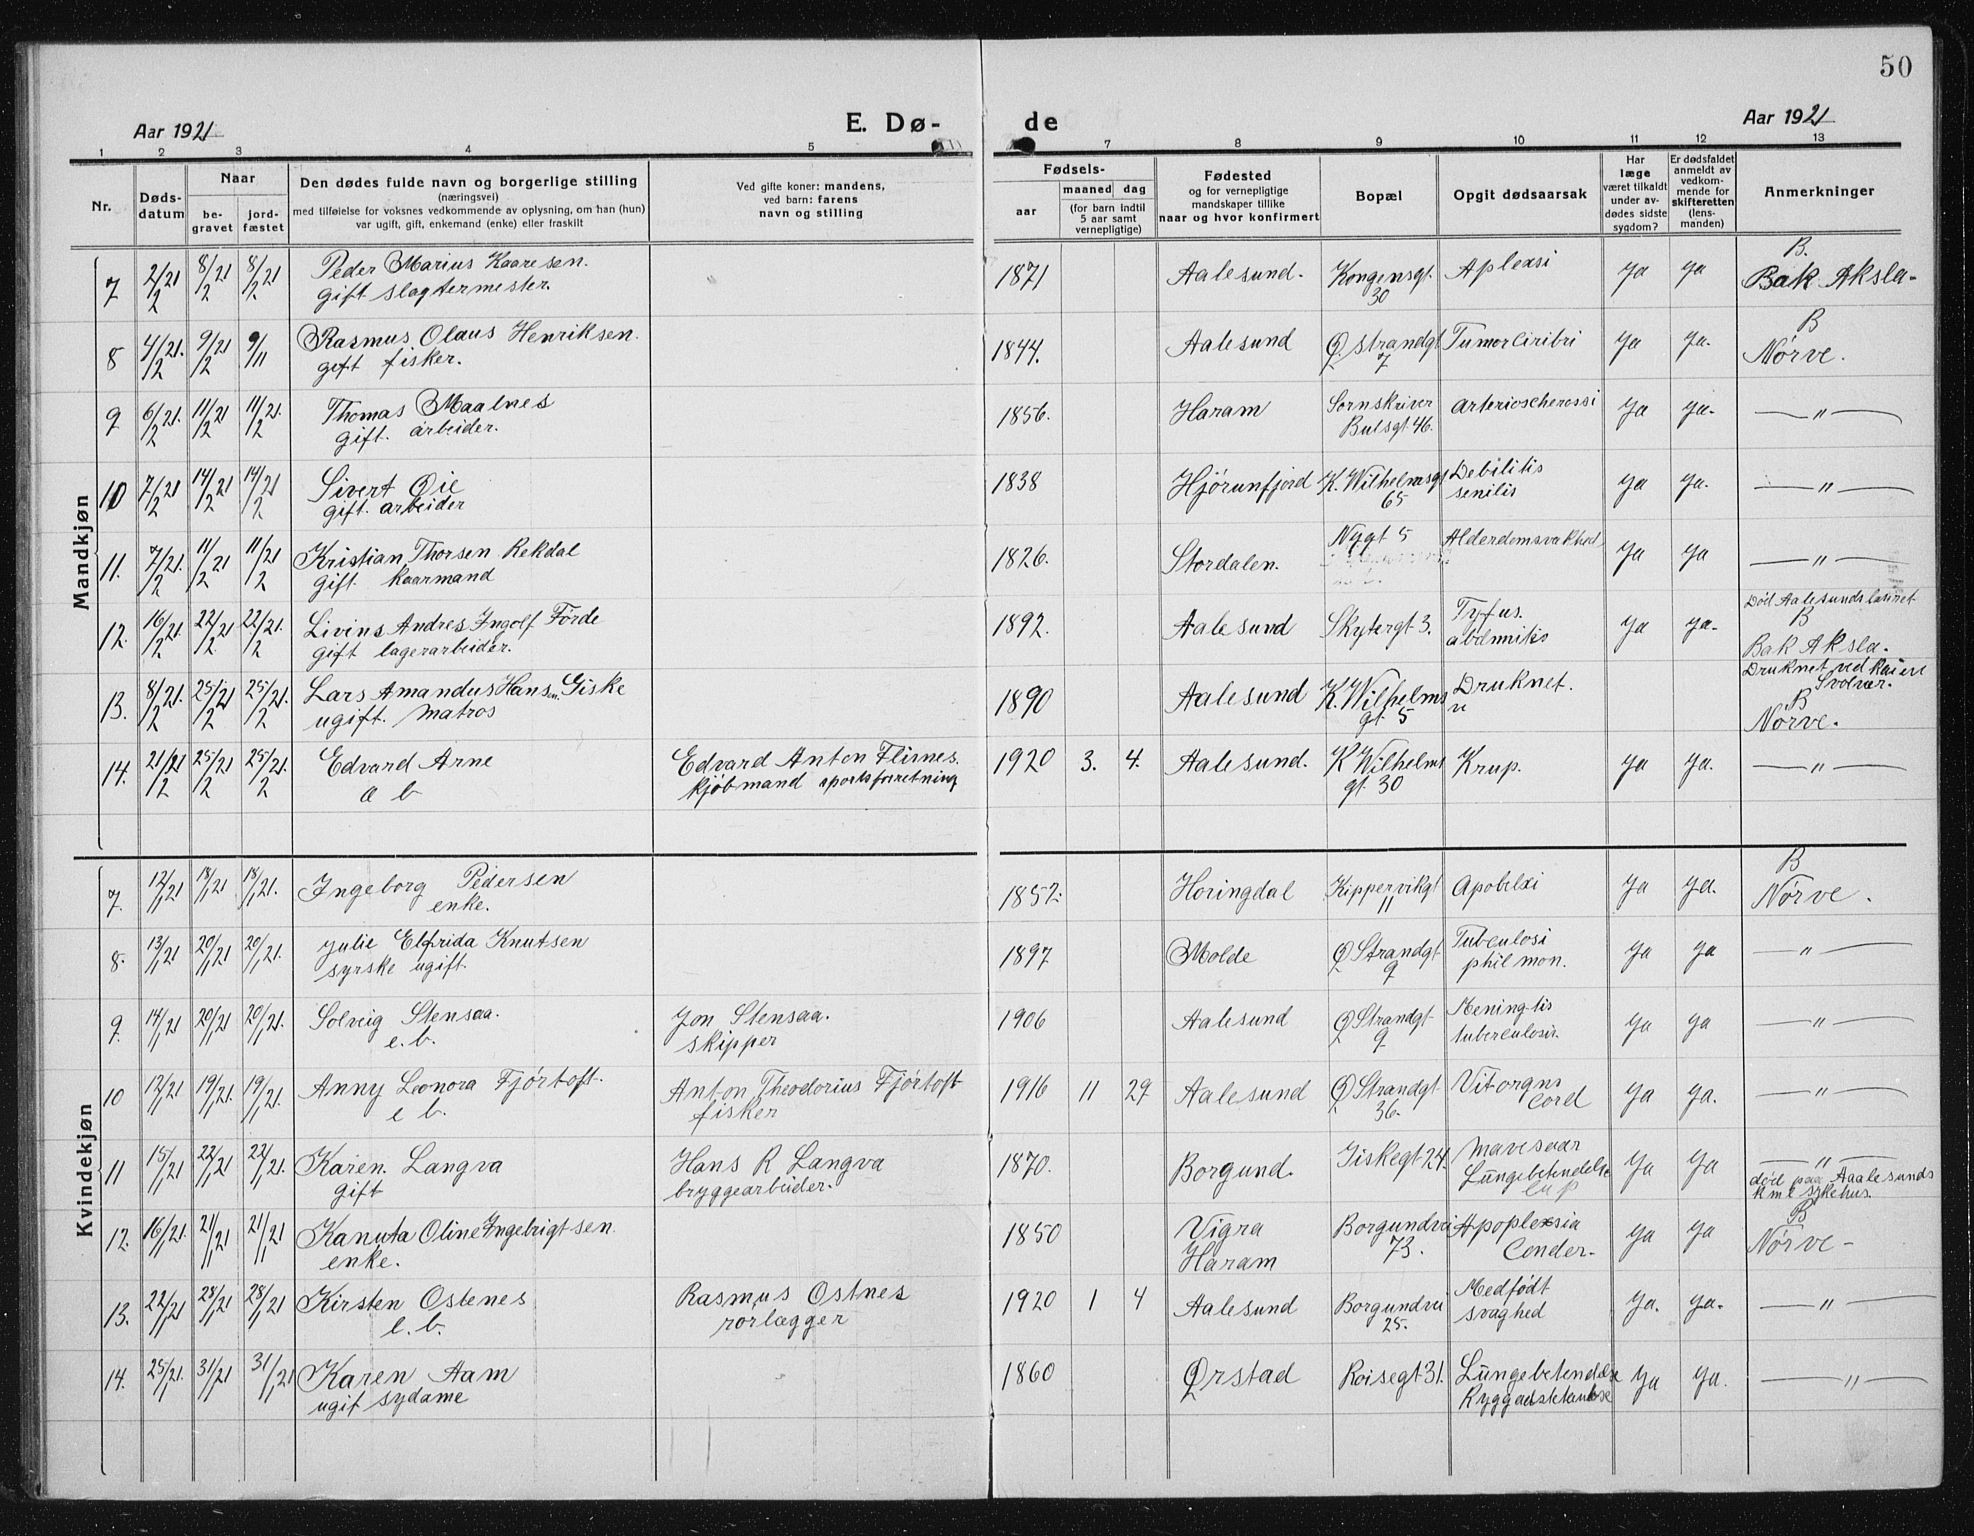 50
Aar 1921
E. Dø-
de
Aar 1921
1 2 3 4 5 7 8 9 10 11 12 13
Nr.
Døds-
datum
Naar
be-
gravet
jord-
fæstet
Den dødes fulde navn og borgerlige stilling
(næringsvei)
med tilføielse for voksnes vedkommende av oplysning, om han (hun)
var ugift, gift, enkemand (enke) eller fraskilt
Ved gifte koner: mandens,
ved barn: farens
navn og stilling
Fødsels-
aar
maaned
dag
(for barn indtil
5 aar samt
vernepligtige)
Fødested
og for vernepligtige
mandskaper tillike
naar og hvor konfirmert
Bopæl
Opgit dødsaarsak
Har
læge
været tilkaldt
under av-
dødes sidste
sygdom?
Er dødsfaldet
anmeldt av
vedkom-
mende for
skifteretten
(lens-
manden)
Anmerkninger
Mandkjøn
7 2/2 21 8/2 21 8/2 21 Peder Marius Kaaresen. 1871 Aalesund. Kongensgt. Aplexsi Ja Ja B.
gift slagtermester. 30 Bak Aksla-
8 4/2 21. 9/2 21 9/11 Rasmus Olaus Henriksen. 1844. Aalesund Ø. strandgt Tumor Ciribri Ja Ja. B
gift fisker. 7 Nørve.
9 6/2 21. 11/2 21 11/2 21. Thomas Maalnes 1856. Haram Sornskriver Arterioscherossi Ja Ja- — " —
gift. arbeider. Bulsgt. 46.
10 7/2 21 14/2 21 14/2 21 Sivert Øie 1838 Hjørunfjord K. Wilhelmsgt Debilitis Ja Ja. — " —
gift. arbeider 65 senilis
11. 7/2 21. 11/2 21 11/2 21 Kristian Thorsen Rekdal 1826. Stordalen. Nygt 5 Alderdomsvakhed, Ja Ja — " —
gift. Kaarmand
12. 16/2 21. 22/2 21 22/2 21. Livins Andres Ingolf Førde 1892. Aalesund Skytergt 3. Tyfus. Ja Ja- Død Aalesunds
gift lagerarbeider. B
Bak Aksla.
13. 8/2 21. 25/2 21 25/2 21. Lars Amandus Hansen Giske 1890 Aalesund K. Wilhelms Druknet. Druknet ved Kaien
ugift. Matros gt. 5 " Svolvær.
B
Nørve.
14. 21/2 21 25/2 21 25/2 21. Edvard Arne Edvard Anton Flisnes. 1920 3. 4. Aalesund. K Wilhelms Krup. Ja Ja. — " —
e b kjøbmand sportsforretning gt. 30
Kvindekjøn
7. 12/1 21 18/1 21 18/1 21. Ingeborg Pedersen 1852. Horingdal Kippervikgt Apobelxi Ja Ja. B
enke. 11 Nørve.
8. 13/1 21 20/1 21 20/1 21. Julie Elfrida Knutsen 1897 Molde Ø Strandgt. Tubeulosi Ja Ja — " —
syrske ugift. 9 phil mon.
9. 14/1 21 20/1 21 20/1 21. Solveig Stensaa. Jon Stensaa. 1906 Aalesund Ø Strandgt. Mening-tis Ja Ja — " —
e. b. skipper 9 tuberculosis.
10 12/1 21 19/1 21. 19/1 21. Anny Leonora Fjørtoft. Anton Theodorius Fjørtoft 1916 11 29 Aalesund Ø Strandgt Vitorgns Ja Ja. — " —
e b. fisker 36. Cord
11 15/1 21 22/1 21 22/1 21. Karen. Langva Hans R Langva 1870. Borgund. Giskegt 24. Mavesaar Ja Ja — " —
gift bryggearbeider. Lungebetendelse død paa Aaalesunds
kml sykehus.
12. 16/1 21. 21/1 21 21/1 21 Kanuta Oline Ingebrigtsen. 1850 Vigra Borgundvei Apoplexsia Ja Ja B
enke. Haram 73. Conder- Nørve-
13. 22/1 21 28/1 21 28/1 21 Kirsten Ostenes Rasmus Ostnes 1920 1 4 Aalesund Borgundvei Medfødt Ja. Ja. — " —
e. b. rørlægger 25. svaghed
14. 25/1 21. 31/1 21 31/1 21 Karen Aam 1860 Ørstad Roisegt 31. Lungebetendelse Ja Ja. — " —
ugif sydame